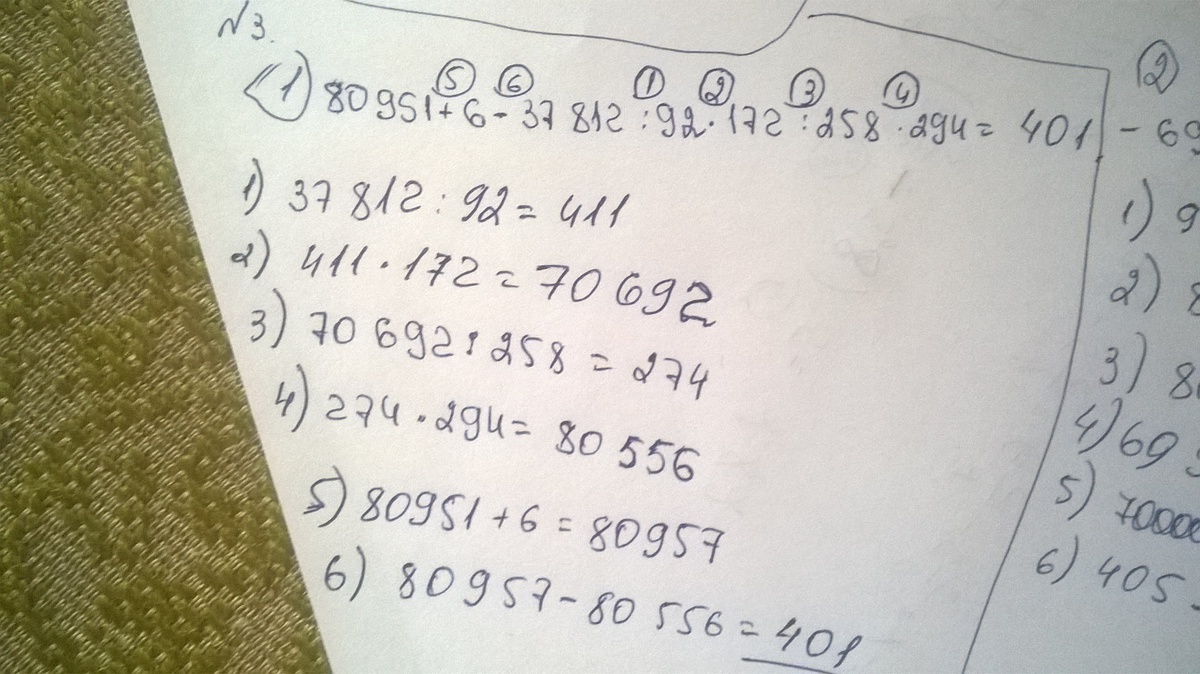 №3.
⑤ ⑥ ① ② ③ ④
1) 80951+6-37 812:92·172:258·294= 401
1) 37 812:92=411
2) 411·172=70 692
3) 70 692:258=274
4) 274·294=80 556
5) 80951+6=80957
6) 80 957-80 556=401
②
- 69
1) 9
2) 8
3) 8
4) 69
5) 70000
6) 405-